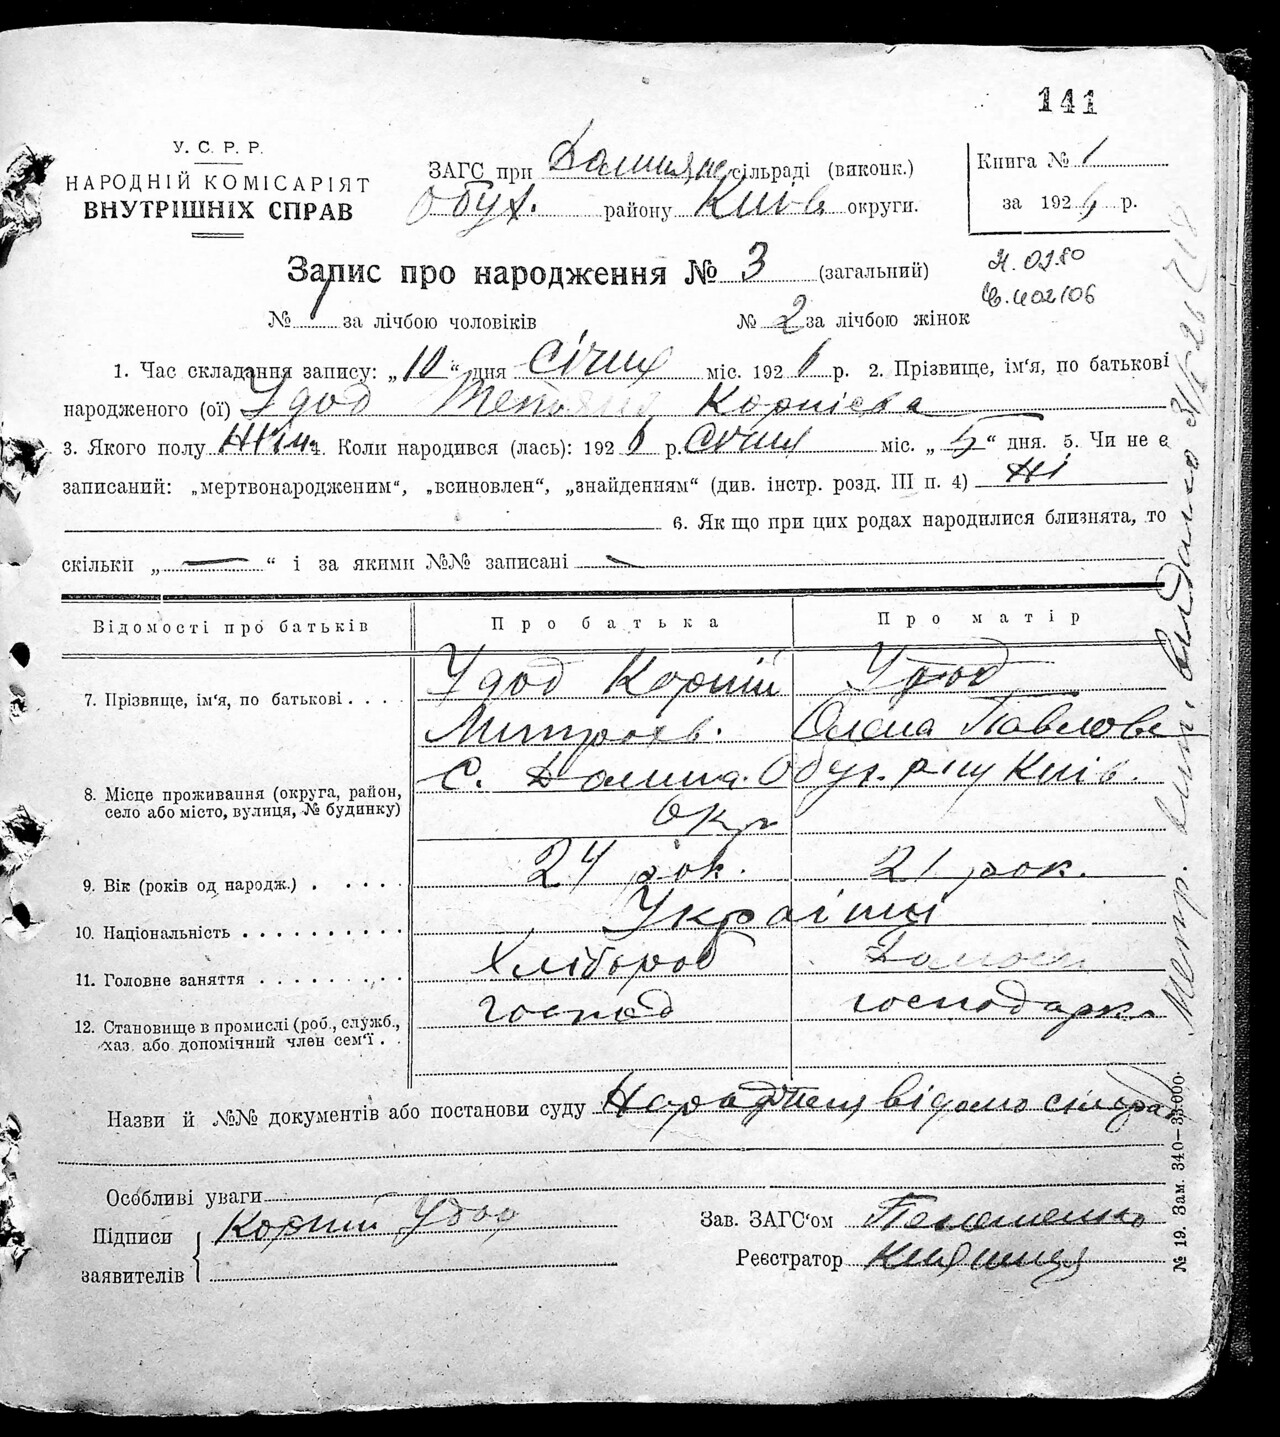 141
У. С. Р. Р.
НАРОДНІЙ КОМІСАРІЯТ
ВНУТРІШНІХ СПРАВ
ЗАГС при сільраді (виконк.)
Обух. району Київ округи.
Книга № 1
за 1926 р.
Запис про народження № 3 (загальний)
№ 1 за лічбою чоловіків № 2 за лічбою жінок
1. Час складання запису: „10“ дня Січня міс. 1926 р. 2. Прізвище, ім‘я, по батькові
народженого (ої) Удод Тетяна Корнієва
3. Якого полу Жін. 4. Коли народився (лась): 1926 р. Січня міс. „5“ дня. 5. Чи не є
записаний: „мертвонародженим“, „всиновлен“, „знайденням“ (див. інстр. розд. III п. 4) Ні
6. Як що при цих родах народилися близнята, то
скільки „—“ і за якими №№ записані —
Відомості про батьків Про батька Про матір
7. Прізвище, ім‘я, по батькові . . . . Удод Корній Удод
Митрохв. Олена Павлове
8. Місце проживання (округа, район, село або місто, вулиця, № будинку) С. Долина. Обух. р-ну Київ.
Окр
9. Вік (років од народж.) . . . . . 24 рок. 21 рок.
10. Національність . . . . . . . . . . Українці
11. Головне заняття . . . . . . . . Хлібороб Домогос
12. Становище в промислі (роб., служб., хаз. або допомічний член сем‘ї . . господ господарка
Назви й №№ документів або постанови суду відомо сільрад
Особливі уваги
Підписи заявителів Корній Удод
Зав. ЗАГС‘ом
Реєстратор
№ 19. Зам. 340—33.000.